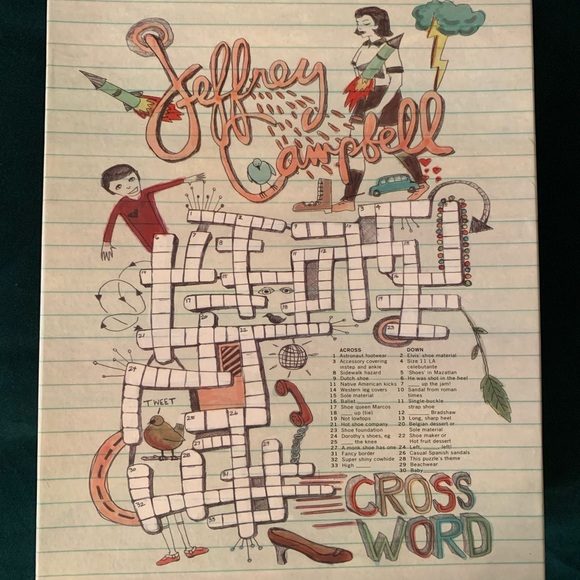 Jeffrey
Campbell
ACROSS
1 Astronaut footwear
3 Accessory covering
instep and ankle
8 Sidewalk hazard
9 Dutch shoe
11 Native American kicks
14 Western leg covers
15 Sole material
16 Ballet
17 Shoe queen Marcos
18 ___ up (tie)
19 Not lowtops
21 Hot shoe company
23 Shoe foundation
24 Dorothy's shoes, eg
25 ___ the knee
27 A monk shoe has one
31 Fancy border
32 Super shiny cowhide
33 High
DOWN
2 Elvis' shoe material
4 Size 11 LA
celebutante
5 'Shoes' in Mazatlan
6 He was shot in the heel
7 ___ up the jam!
10 Sandal from roman
times
11 Single-buckle
strap shoe
12 ___ Bradshaw
13 Long, sharp heel
20 Belgian dessert or
Sole material
22 Shoe maker or
Hot fruit dessert
24 Left, ___ left!
26 Casual Spanish sandals
28 This puzzle's theme
29 Beachwear
30 Baby
TWEET
CROSS
WORD